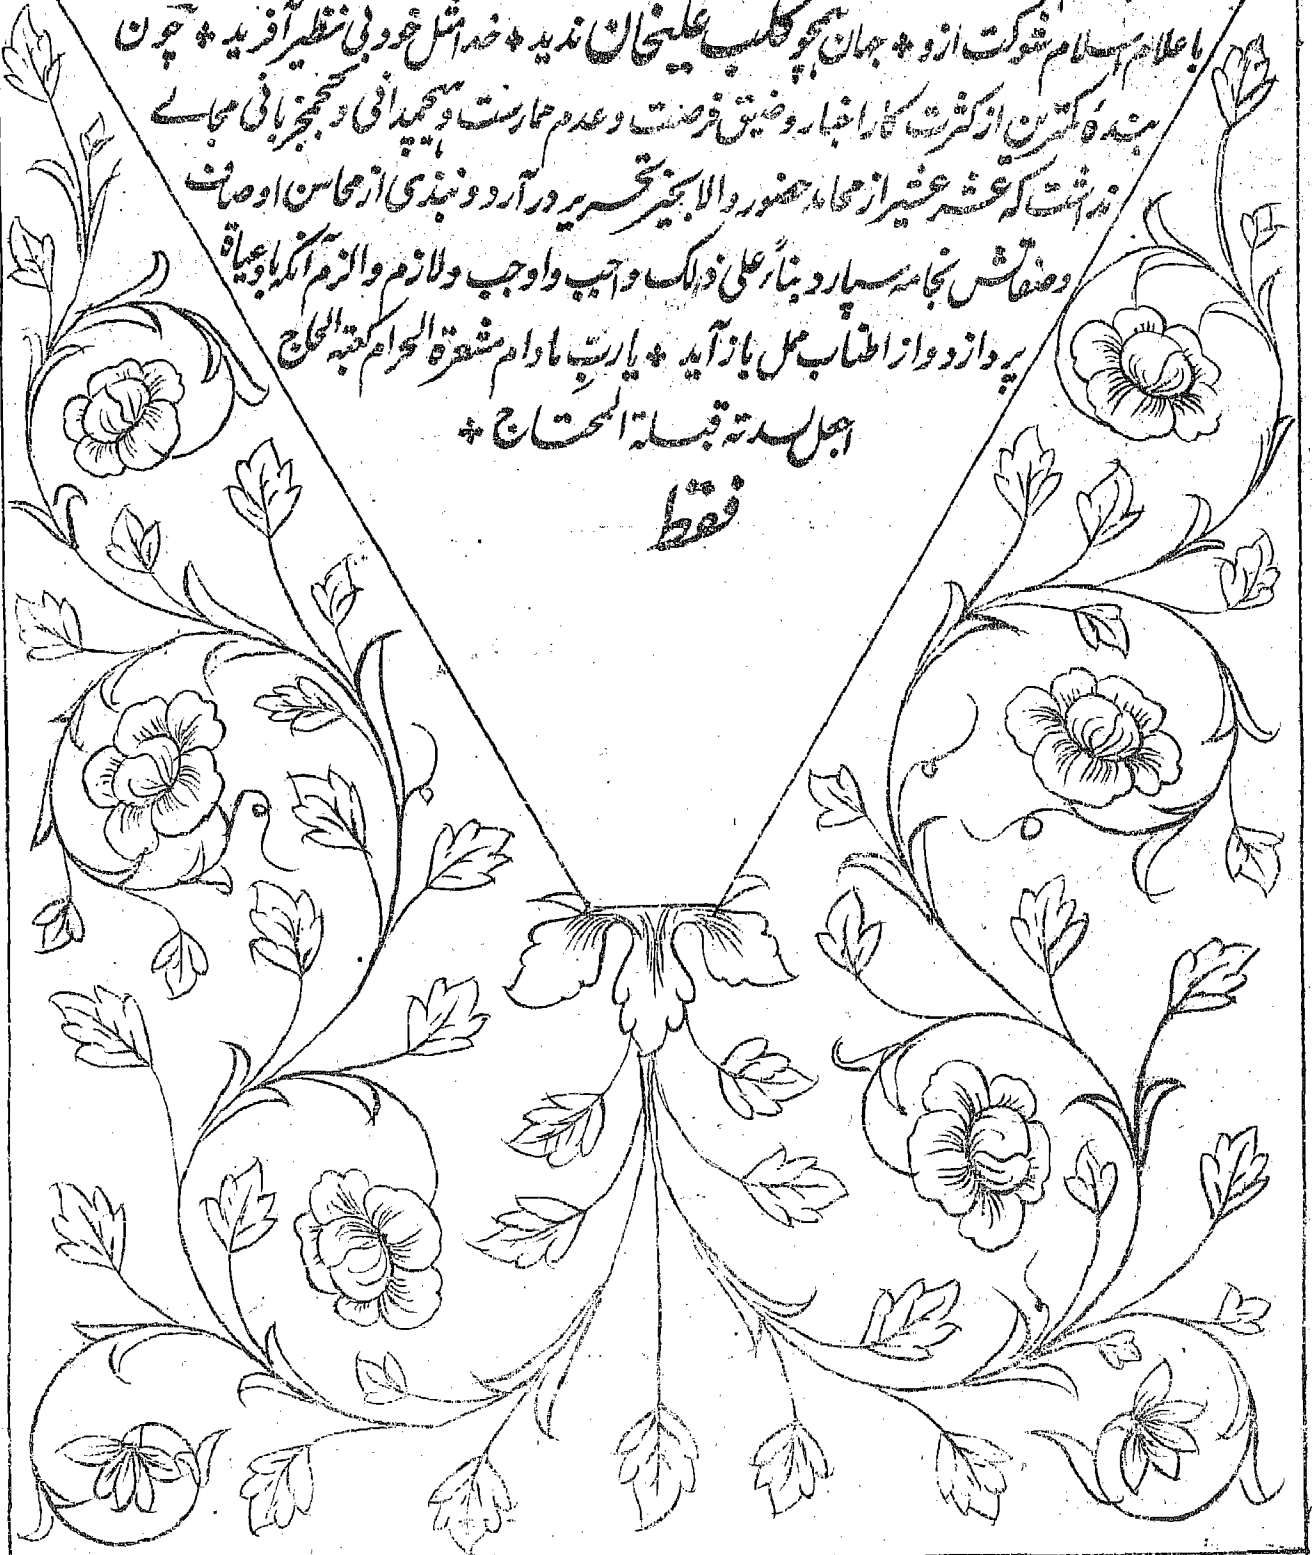 باعلام اسلام شوکت ازو + جهان همچو کلب علیخان ندید + خدا مثل خود بی نظیر آفرید + چون
بندهٔ کمترین از کثرت کار اخبار و ضیق فرصت و عدم ممارست و هیچمدانی و کجمج زبانی مجالے
نداشت که عشر عشیر از محامد حضور والا بحیز تحریر در آرد و نبذی از محاسن اوصاف
و صفاتش بخامه سپارد بناءً علی ذلک واجب و اوجب و لازم و الزم آنکه بادعیاة
پردازد و از اطناب ممل باز آید + یا رب ما دام مشعرة الحرام کعبة الحاج
اجعل سدته قبلة المحتاج +
فقط